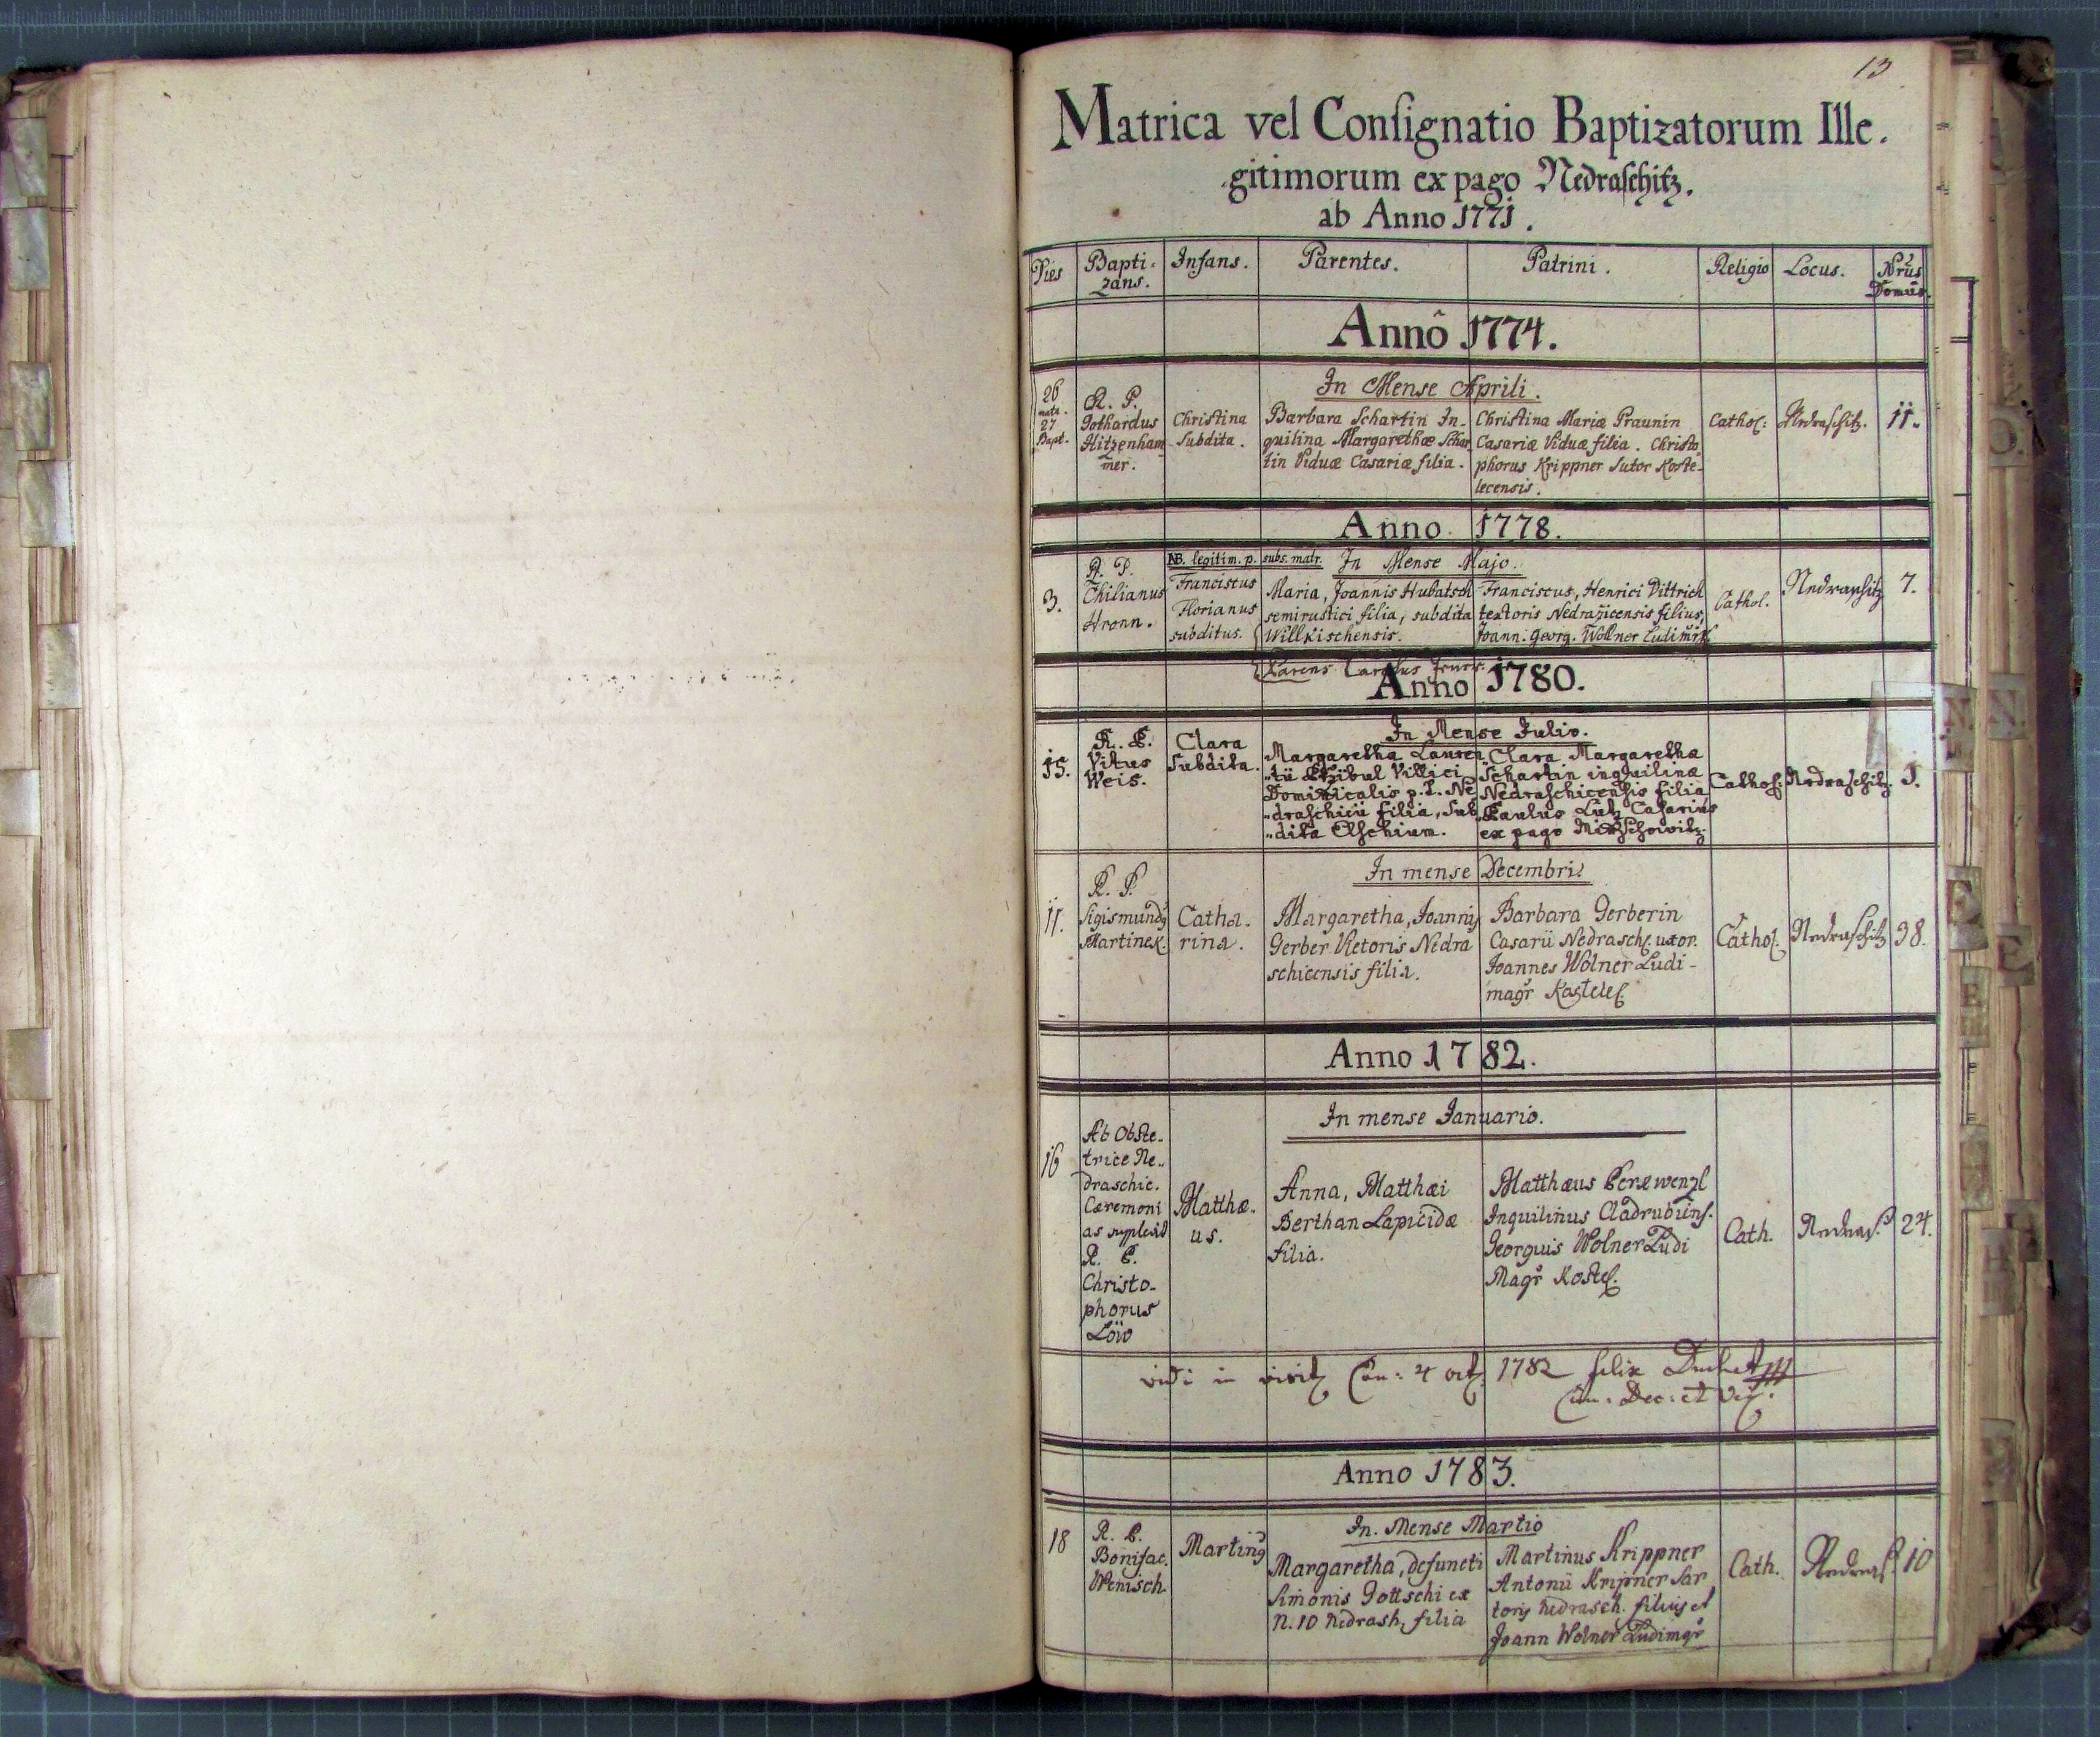 13
Matrica vel Conſignatio Baptizatorum Ille.
gitimorum ex pago Nedraſchitz.
ab Anno 1771.
Dies
Bapti-
zans.
Infans.
Parentes.
Patrini.
Religio
Locus.
Nrus
Domus.
Annô 1774.
In Mense Aprili.
26
natx.
27
Bapt.
R. P.
Gothardus
Hitzenham-
mer.
Christina
Subdita.
Barbara Schartin In-
quilina Margarethæ Schar
tin Viduæ Casariæ filia.
Christina Mariæ Praunin
Casariæ Viduæ filia. Christo
phorus Krippner Sutor Koste-
lecensis.
Cathol:
Nedraschitz.
11.
Anno 1778.
NB. legitim. p. subs. matr.
In Mense Majo.
3.
R. P.
Chilianus
Hronn.
Franciscus
Florianus
subditus.
Maria, Joannis Hubatsch
semirustici filia, subdita
Willkischensis.
Parens Carolus
Franciscus, Henrici Dittrich
textoris Nedrazicensis filius,
Joann. Georg. Wollner Ludimr̃
Cathol.
Nedraschitz
7.
Anno 1780.
In Mense Julio.
15.
R. P.
Vitus
Weis.
Clara
Subdita.
Margaretha Lauren
„tii Villici
Dominicalis p. t. Ne
„draschicii filia, Sub
„dita Elschium.
Clara Margaretha
Schartin inquilinæ
Nedraschicensis filia
Paulus Lutz Casarius
ex pago
Cathol:
Nedraschitz.
1.
In mense Decembri
11.
R. P.
Sigismundg
Martinek.
Catha-
rina.
Margaretha, Joannis
Gerber Vietoris Nedra
schicensis filia.
Barbara Gerberin
Casarii Nedrasch. uxor.
Joannes Wolner Ludi-
magr̃ Kostelec.
Cathol.
Nedraschitz
38.
Anno 1782.
In mense Januario.
16
Ab Obste-
trice Ne-
draschic.
Cæremoni
as suplevit
R. P.
Christo-
phorus
Löw
Matthæ-
us.
Anna, Matthæi
Berthan Lapicidæ
filia.
Matthæus
Inquilinus Cladrubiens.
Georgius Wolner Ludi
Magr̃ Kostel.
Cath.
Nedras.
24.
vidi in visit. Can: 4 oct. 1782 felix
Can. Dec: et Vic.
Anno 1783.
In. Mense Martio
18
R. P.
Bonifac.
Wenisch
Marting
Margaretha, defuncti
Simonis Gottschi ex
N. 10 Nedrash, filia
Martinus Krippner
Antonii Kripner Sar
toris Nedrasch. filius et
Joann Wolner Ludimgr̃
Cath.
Nedras.
10